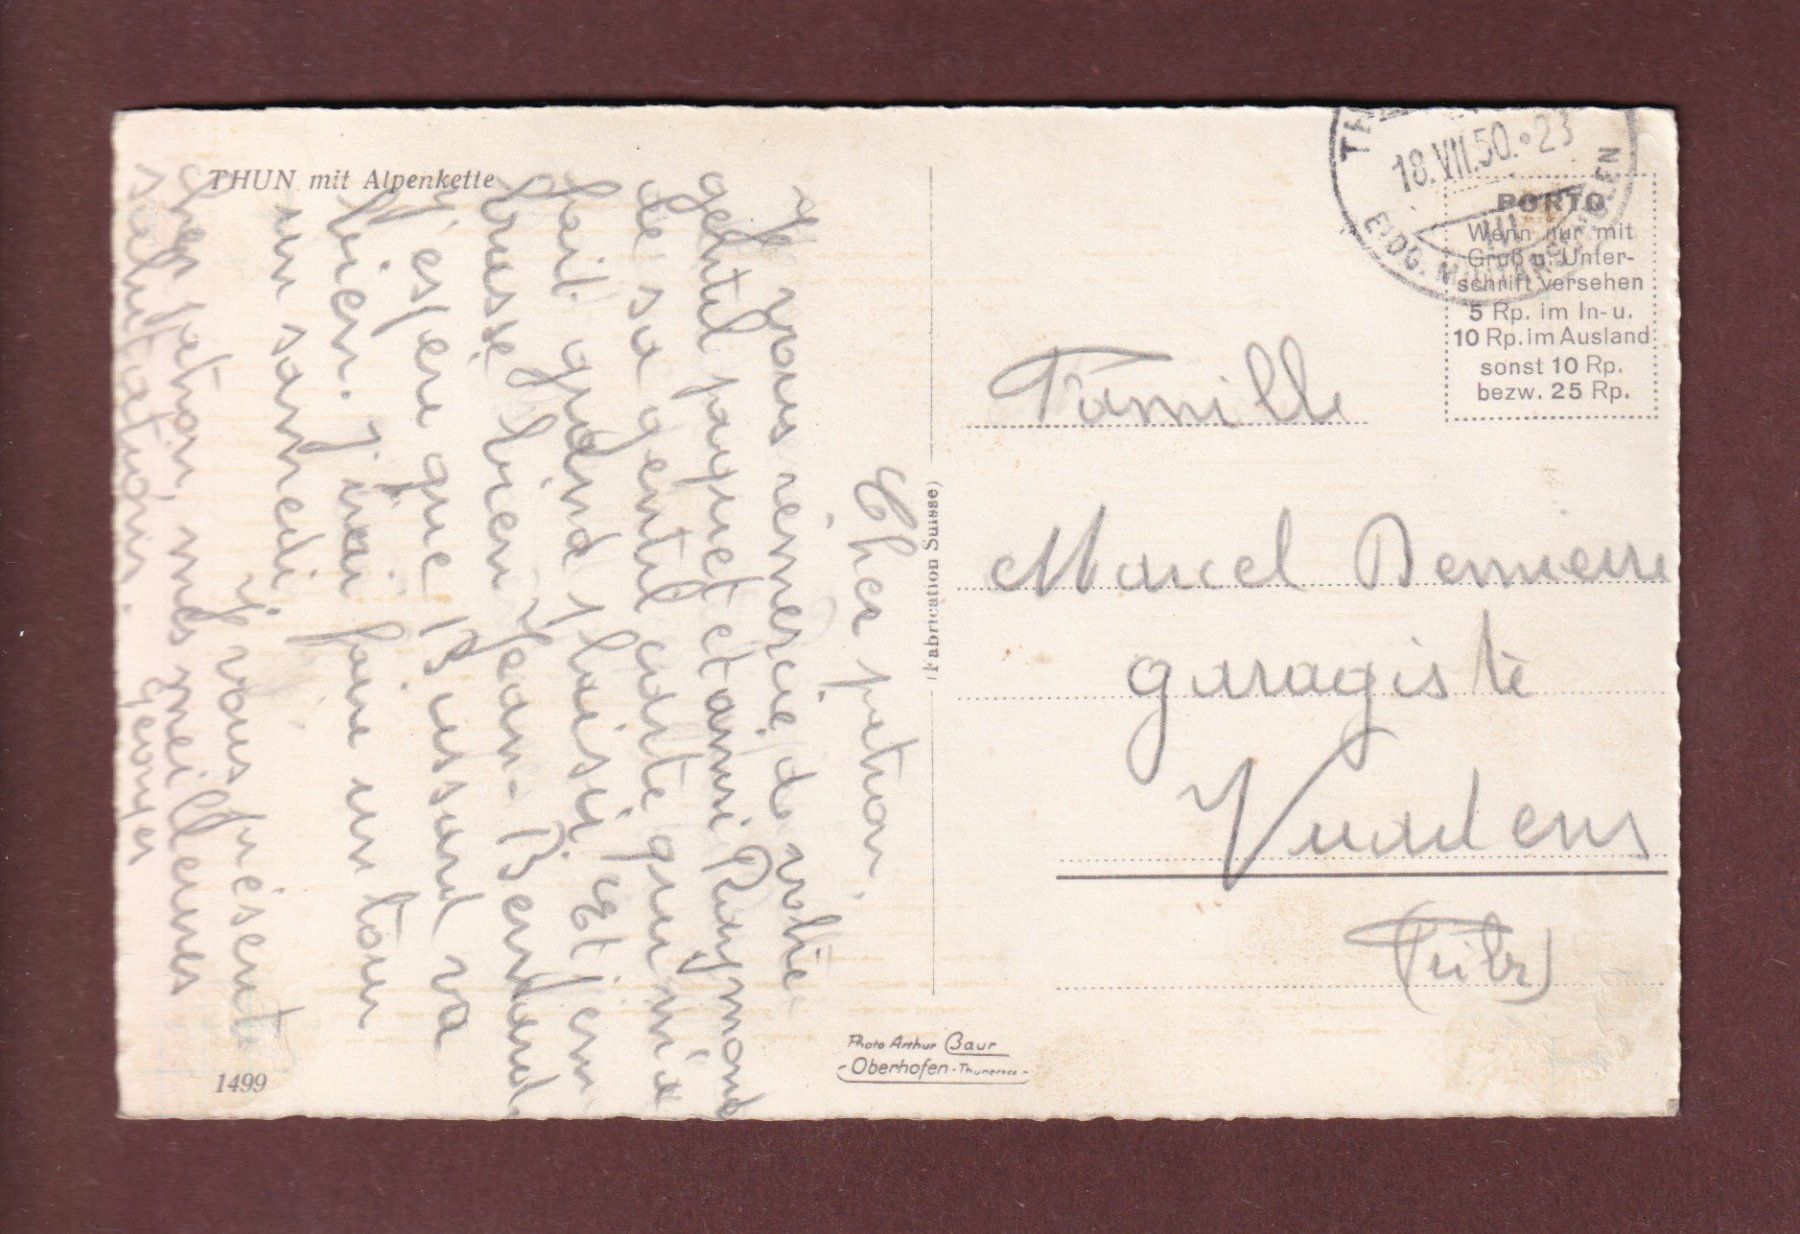 THUN mit Alpenkette
Cher patron,
Je vous remercie de votre
gentil paquet et ainsi Raymond
de sa gentil carte qui m'a
fait grand plaisir. Et j'en
bien Jean.
J'espère que va
bien. J'irai faire un tour
un samedi
Je vous présente
cher patron, mes meilleures
salutations.
Georges
1499
(Fabrication Suisse)
Photo Arthur Baur
Oberhofen - Thunersee -
18.VII.50.•23
EIDG. MILIT
PORTO
Wenn nur mit
Gruß u. Unter-
schrift versehen
5 Rp. im In- u.
10 Rp. im Ausland
sonst 10 Rp.
bezw. 25 Rp.
Famille
Marcel Demierre
garagiste
Vuadens
(Fribg)